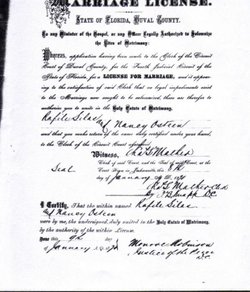 MARRIAGE LICENSE.
STATE OF FLORIDA, DUVAL COUNTY.
To any Minister of the Gospel, or any Officer Legally Authorized to Solemnize
the Rites of Matrimony:
Whereas, application having been made to the Clerk of the Circuit
Court of Duval County, for the Fourth Judicial Circuit of the
State of Florida, for a LICENSE FOR MARRIAGE, and it appear-
ing to the satisfaction of said Clerk that no legal impediments exist
to the Marriage now sought to be solemnized; these are therefore to
authorize you to unite in the Holy Estate of Matrimony,
Rafile Silas
and Nancy Osteen
and that you make return of the same duly certified under your hand,
to the Clerk of the Circuit Court aforesaid.
Witness,
Clerk of said Court, and the Seal of said Court, at the
Seal Court House in Jacksonville, this
day of January
I Certify, That the within named Rafile Silas
and Nancy Osteen
were by me, the undersigned, duly united in the Holy Estate of Matrimony,
by the authority of the within License.
January